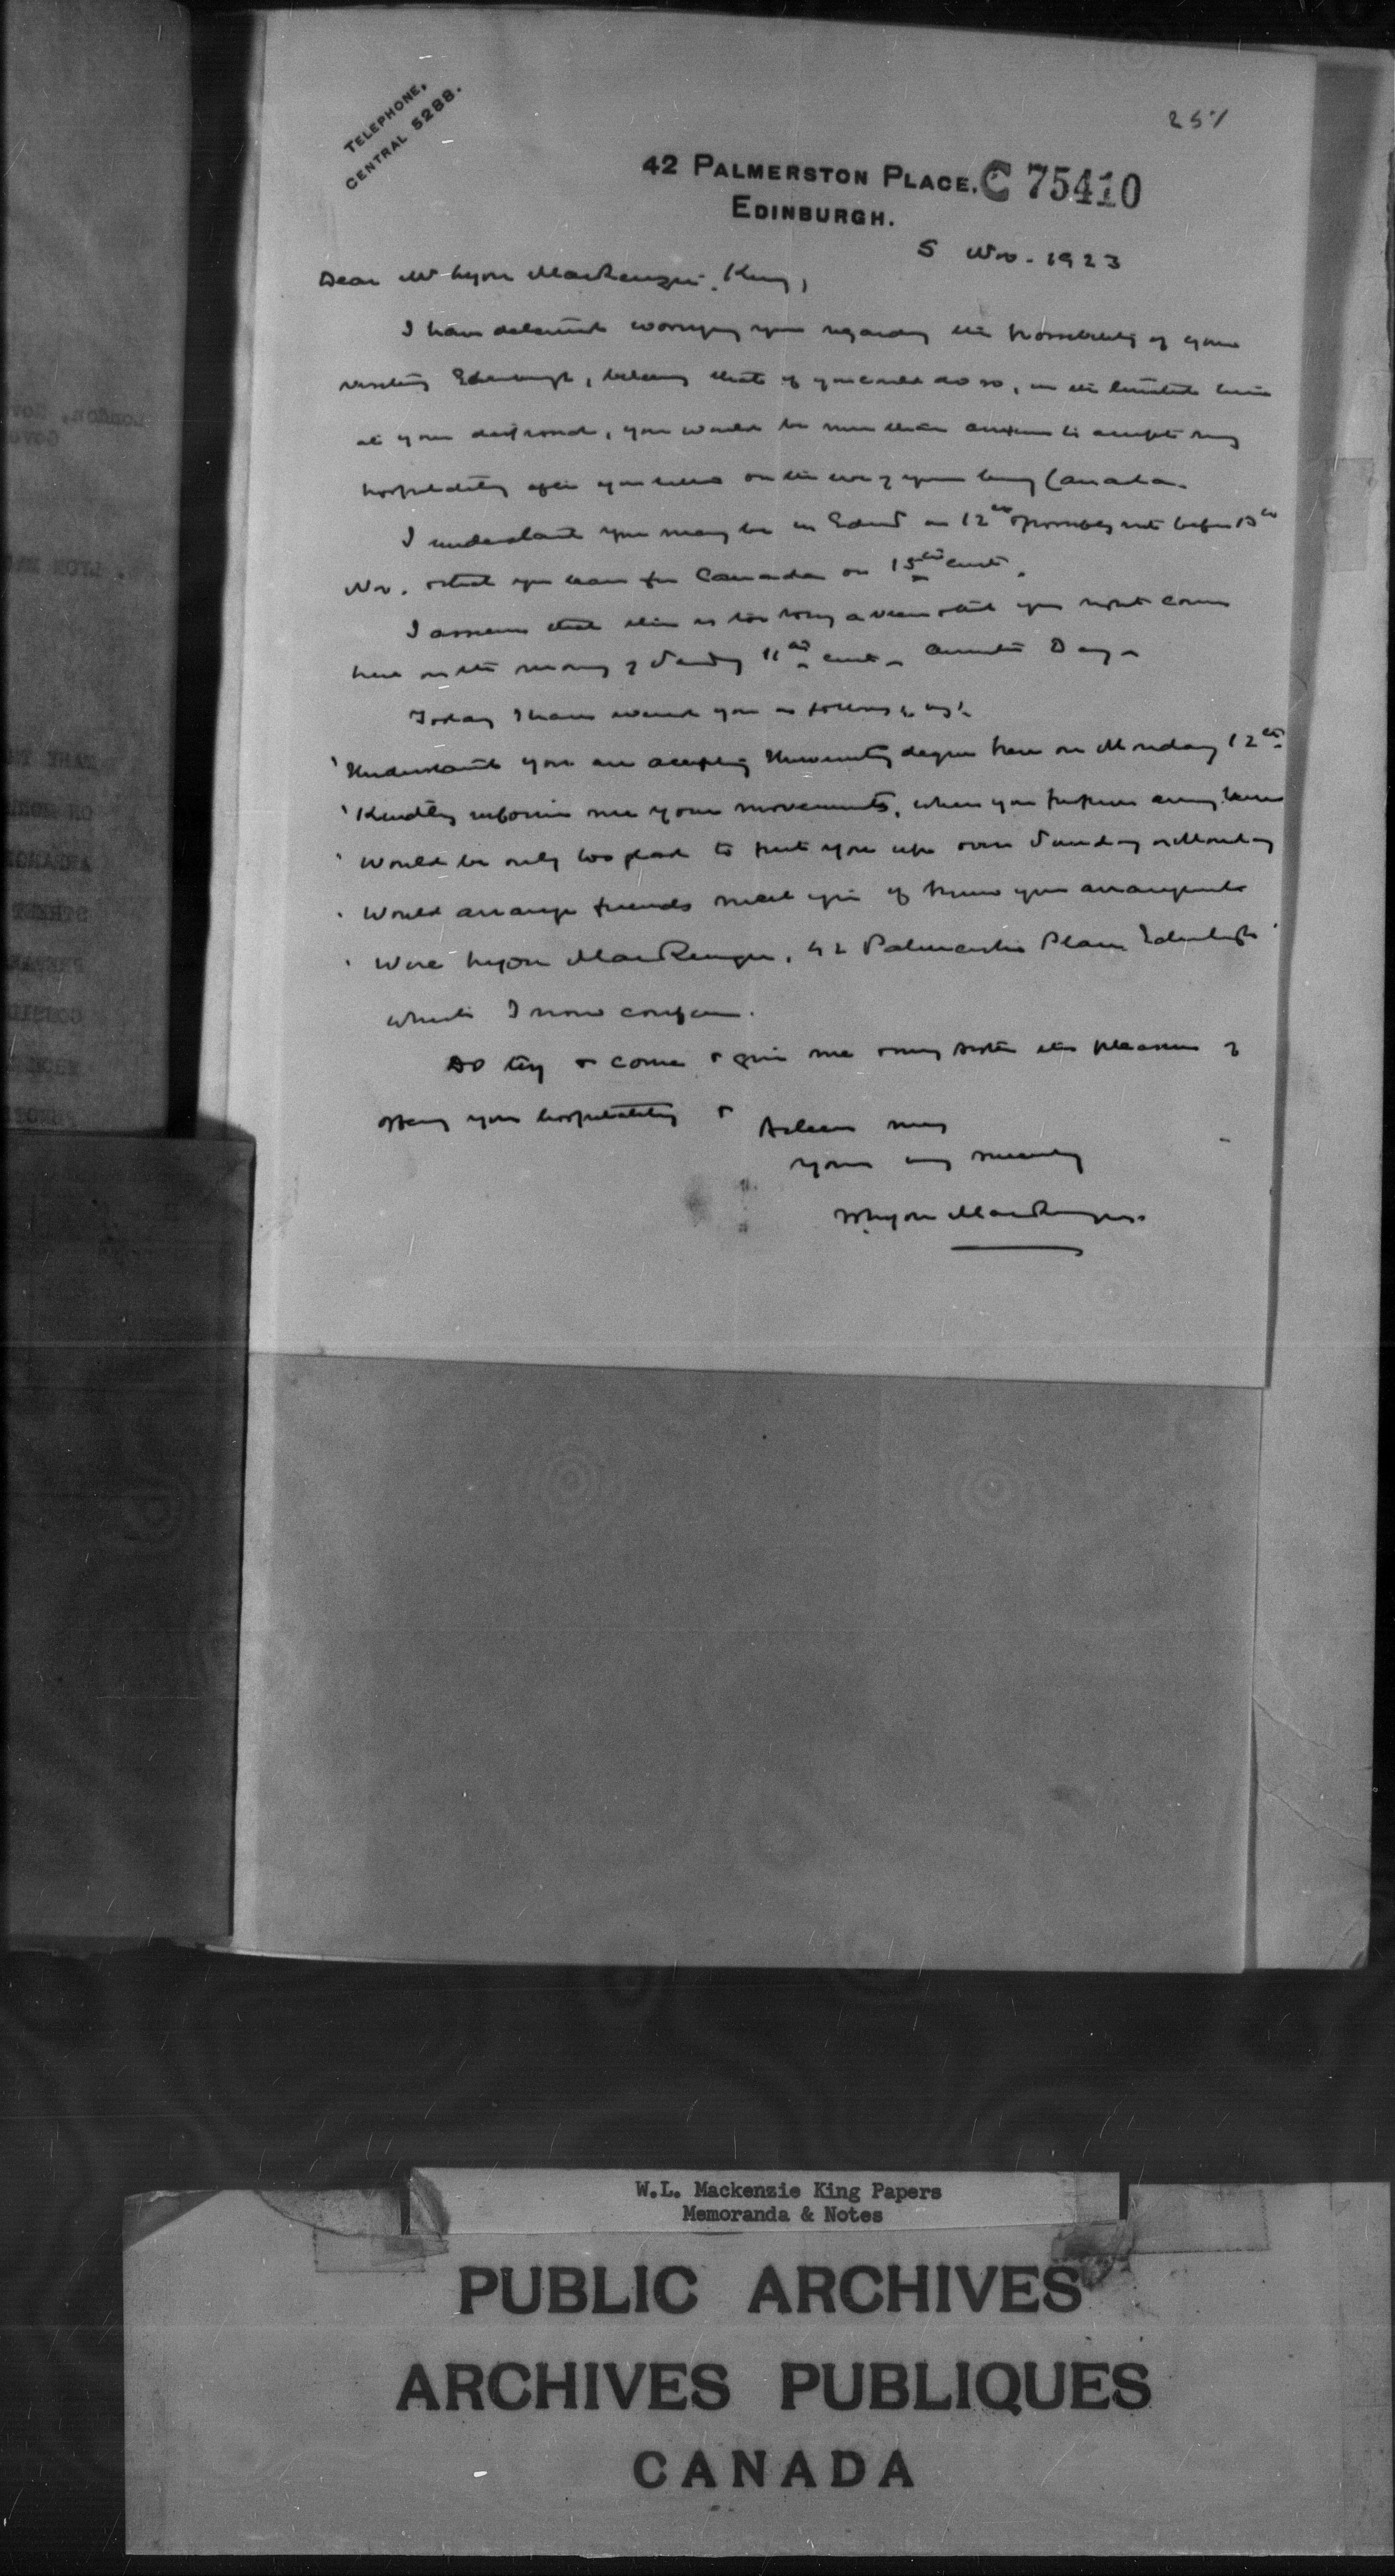 TELEPHONE,
CENTRAL 5288.
257
42 PALMERSTON PLACE,
C 75410
EDINBURGH.
5 Nov. 1923
Dear Mr Lyon MacKenzie King,
I have worrying you regarding the possibility of your
visiting Edinburgh, that if you could do so, in the limited time
at your disposal, you would be to accept my
hospitality after your on the eve of your Canada.
I understand you may be in on 12th or possibly not before 13th
Nov. & that you leave for Canada on 15th
I assume that this is & that you might come
here on the morning of Sunday 11th Day
Today I have wired you as follows
'Understand you are accepting University degree here on Monday 12th
'Kindly inform me your movements, when you propose
'Would be only too glad to put you up over Sunday or Monday
'Would arrange friends meet you if know your arrangements
'Wire Lyon MacKenzie, 42 Palmerston Place Edinburgh'
which I now confirm.
Do try & come & give me & my sister the pleasure of
offering you hospitality & Believe me
Yours very sincerely
Lyon MacKenzie.
London,
LYON
W.L. Mackenzie King Papers
Memoranda & Notes
PUBLIC ARCHIVES
ARCHIVES PUBLIQUES
CANADA